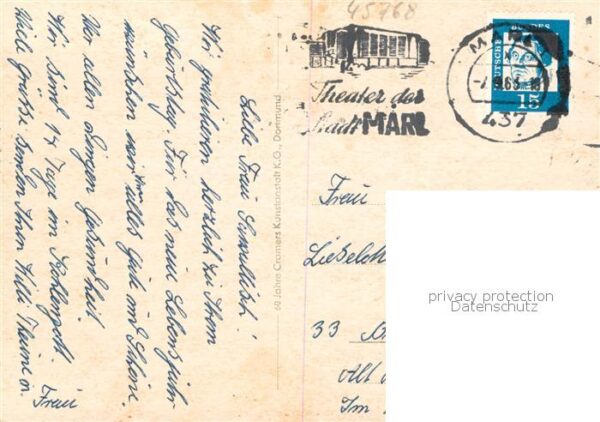 45768
Theater der
Stadt MARL
MARL
63
437
DEUTSCHE BUNDES
15
Liebe Frau
Wir gratulieren herzlich zu Ihrem
Geburtstag. Für das neue Lebensjahr
wünschen wir Ihnen alles Gute und Schöne
Vor allen Dingen Gesundheit.
Wir sind 14 Tage im
Viele Grüsse senden Ihnen Willi Thieme u.
Frau
60 Jahre Cramers Kunstanstalt K.G., Dortmund
Frau
33
Alt
Im
privacy protection
Datenschutz